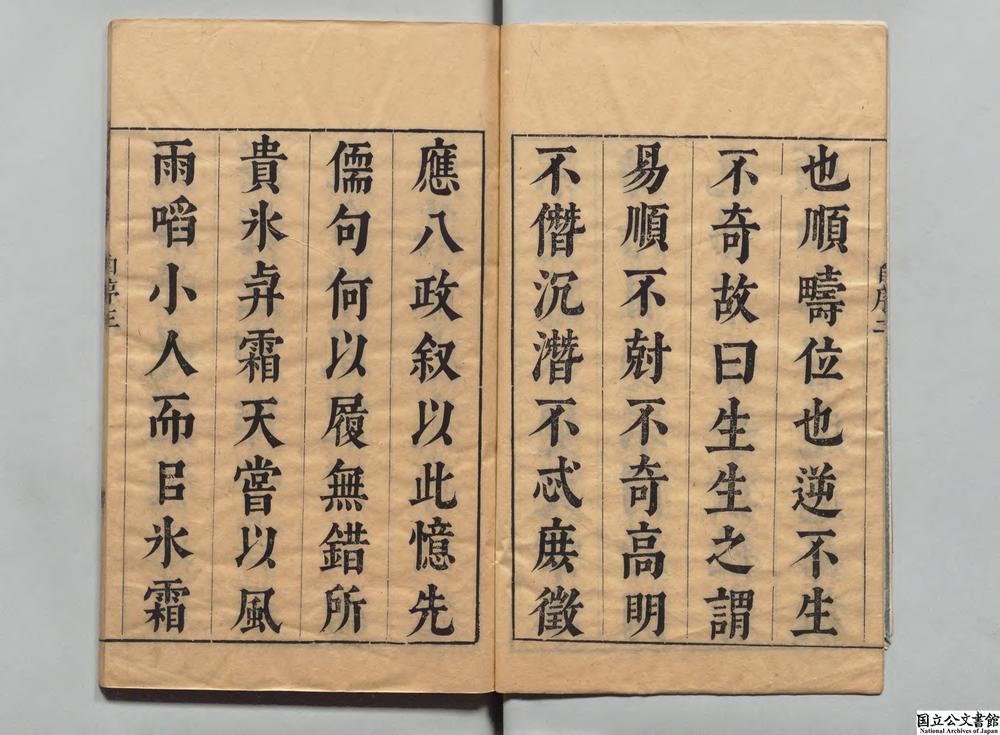 也順疇位也逆不生
不奇故曰生生之謂
易順不尅不奇高明
不僭沉潛不忒庶徵
應八政叙以此憶先
儒句何以履無錯所
貴氷與霜天嘗以風
雨啗小人而㠯氷霜
序二
序三
国立公文書館
National Archives of Japan